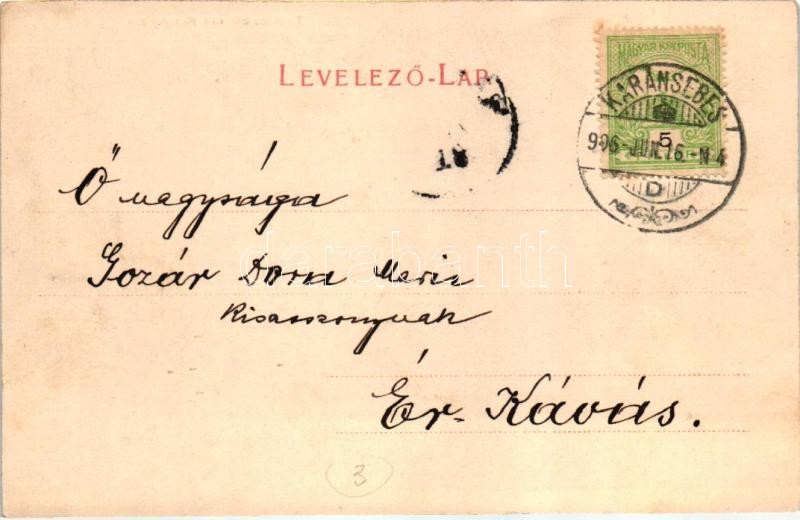 LEVELEZŐ-LAP
MAGYAR KIR. POSTA
5
KARÁNSEBES
906 JUN. 16 - N 4
D
Ő nagysága
Gozár Dorna Maria
Kisasszonynak
Ér-Kávás.
3
darabanth